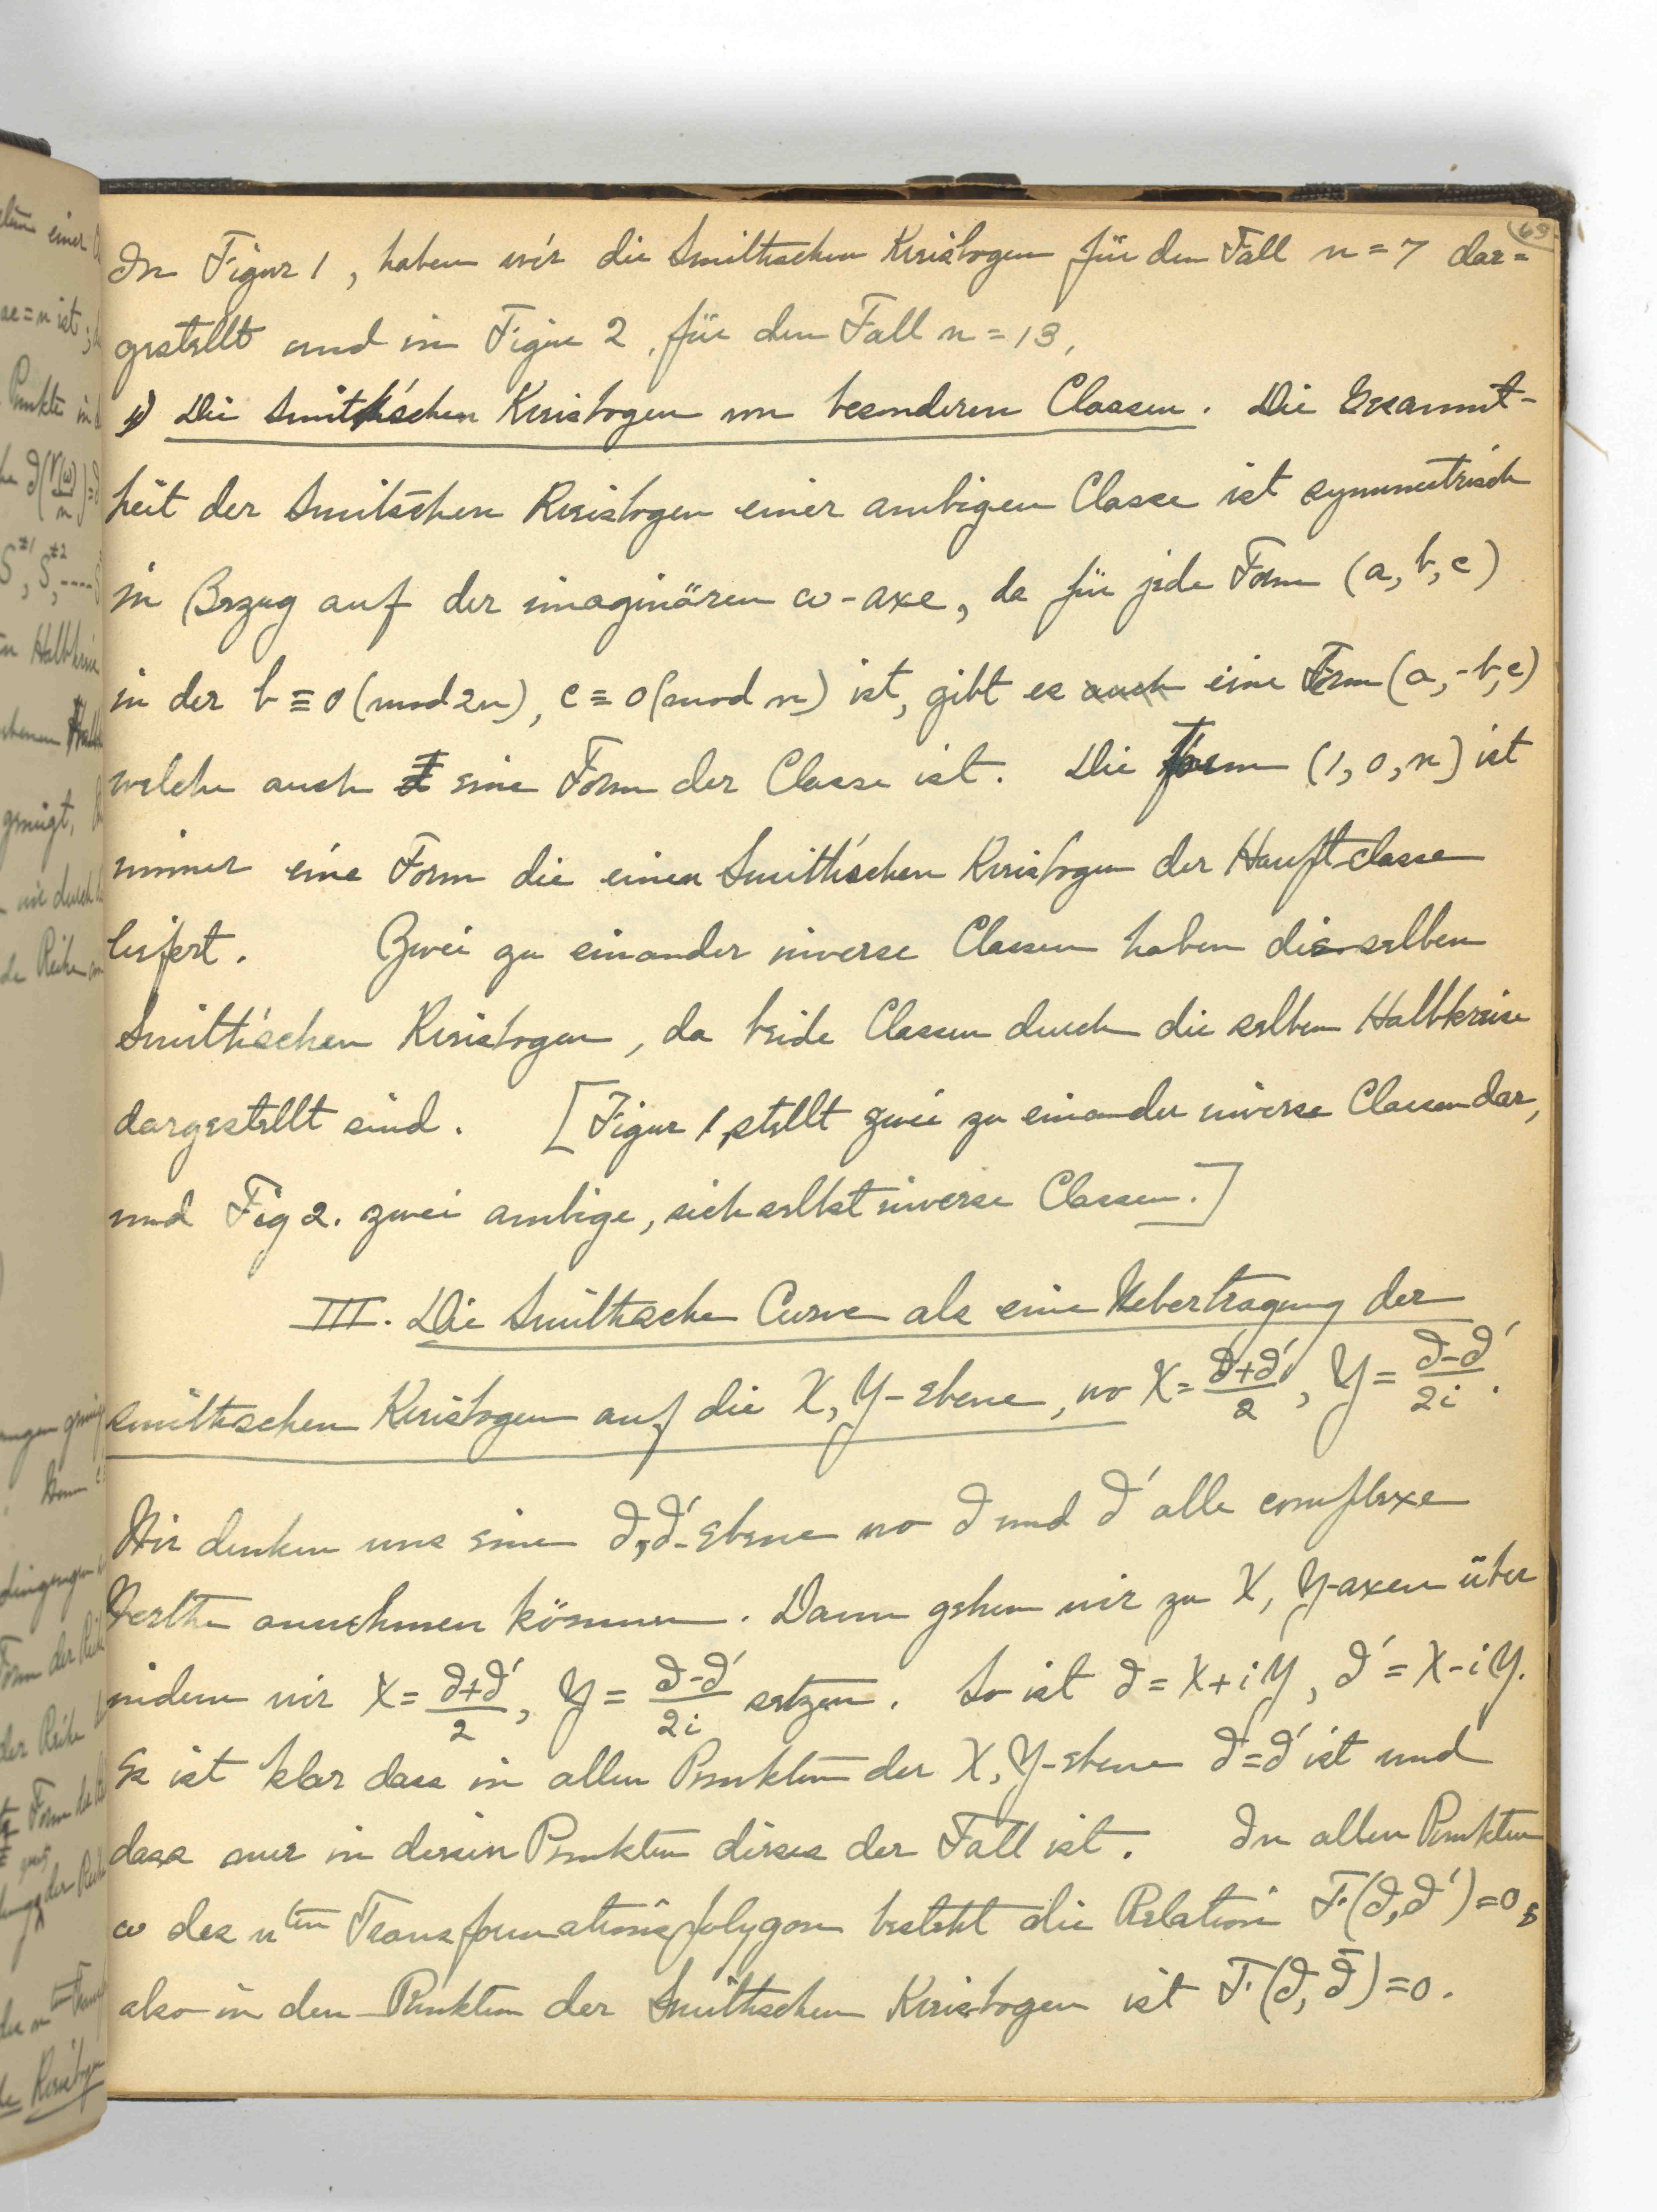 69.
In Figur 1, haben wir die Smithschen Kreisbogen für den Fall n = 7 dar=
gestellt und in Figur 2, für den Fall n = 13,
Die Smith'schen Kreisbogen von besonderen Classen. Die Gesammt-
heit der Smitschen Kreisbogen einer ambigen Classe ist symmetrisch
in Bezug auf der imaginären ω-axe, da für jede Form (a, b, c)
in der b ≡ 0 (mod 2n), c ≡ 0 (mod n) ist, gibt es auch eine Form (a, -b, c)
welche auch eine Form der Classe ist. Die Form (1, 0, n) ist
immer eine Form die einen Smith'schen Kreisbogen der Hauptclasse
liefert. Zwei zu einander inverse Classen haben dieselben
Smith'schen Kreisbogen, da beide Classen durch die selben Halbkreise
dargestellt sind. [Figur 1, stellt zwei zu einander inverse Classen dar,
und Fig 2. zwei ambige, sich selbst inverse Classen.]
III. Die Smithsche Curve als eine Uebertragung der
smithschen Kreisbogen auf die X, Y-ebene, wo X = (∂+∂')/2, Y = (∂-∂')/2i.
Wir denken uns eine ∂,∂'-Ebene wo ∂ und ∂' alle complexe
Werthe annehmen können. Dann gehen wir zu X, Y-axen über
indem wir X = (∂+∂')/2, Y = (∂-∂')/2i setzen. So ist ∂ = X+iY, ∂' = X-iY.
Es ist klar dass in allen Punkten der X, Y-ebene ∂̄=∂' ist und
dass nur in diesen Punkten dieses der Fall ist. In allen Punkten
ω des n ten Transformationspolygon besteht die Relation F(∂,∂')=0,
also in den Punkten der Smithschen Kreisbogen ist F(∂, ∂̄)=0.